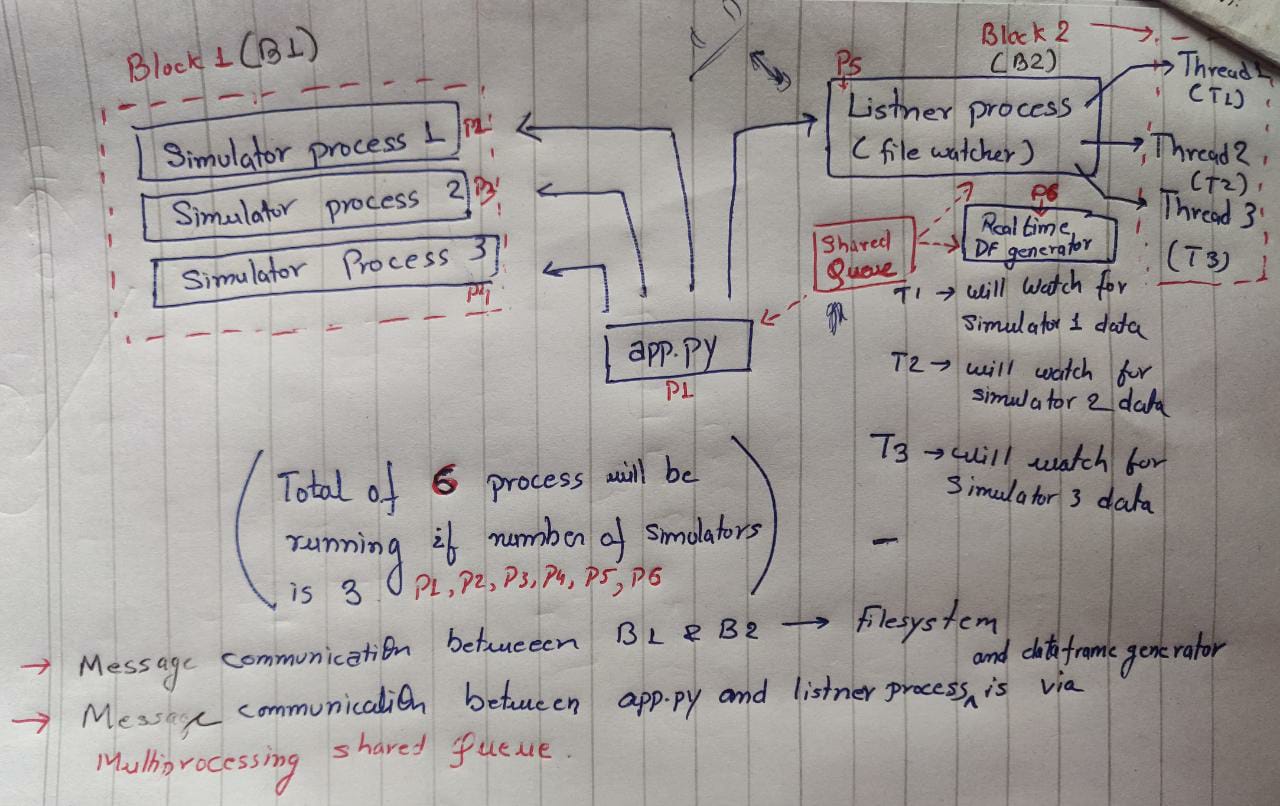 Block 1 (B1)
Simulator process 1 P2
Simulator process 2 P3
Simulator Process 3
P4
app.py
P1
Block 2
(B2)
P5
Listner process
(file watcher)
Thread 1
(T1)
Thread 2
(T2)
Thread 3
(T3)
P6
Real time
DF generator
Shared
Queue
T1 → will watch for
simulator 1 data
T2 → will watch for
simulator 2 data
T3 → will watch for
simulator 3 data
-
(Total of 6 process will be
running if number of simulators
is 3 P1, P2, P3, P4, P5, P6)
→ Message communication betweeen B1 & B2 → filesystem
and dataframe generator
→ Message communication between app.py and listner process ^ is via
Multiprocessing shared queue.